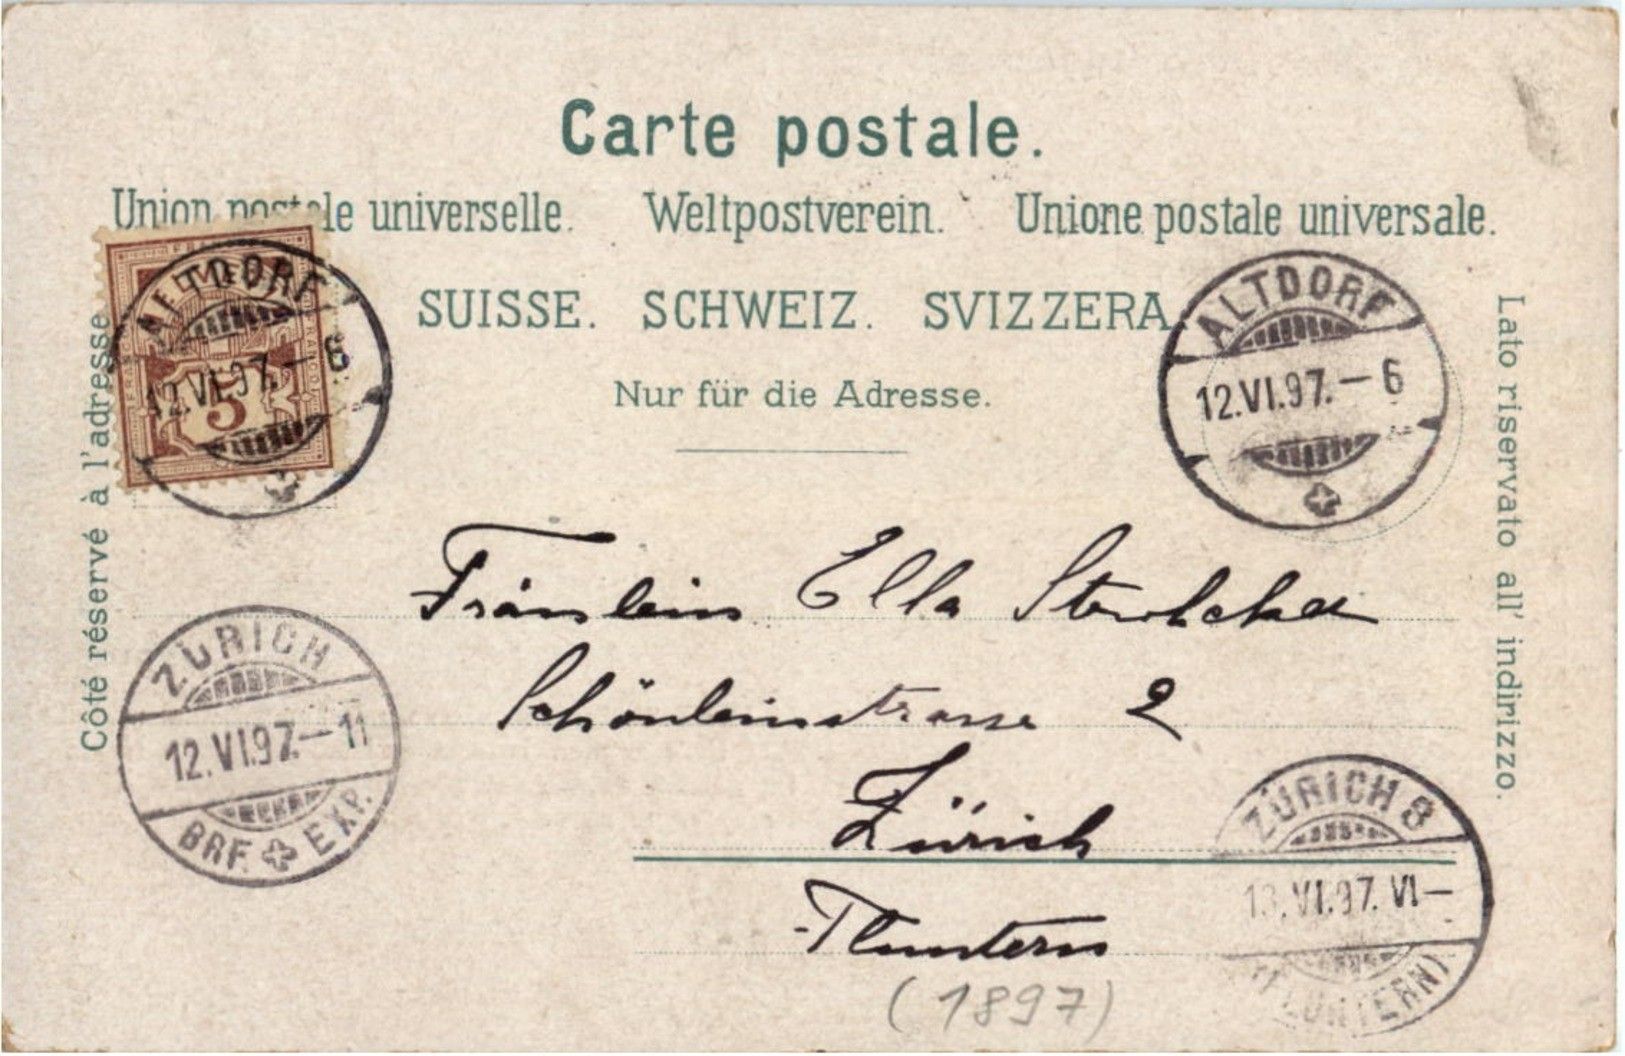 Carte postale.
Union postale universelle. Weltpostverein. Unione postale universale.
SUISSE. SCHWEIZ. SVIZZERA.
Nur für die Adresse.
Côté réservé à l'adresse
Lato riservato all' indirizzo.
HELVETIA
FRANCO
5
ALTDORF
12.VI.97.–6
ALTDORF
12.VI.97.–6
Fräulein Ella
Schönleinstrasse 2
Zürich
-Fluntern
(1897)
ZÜRICH
12.VI.97.–11
BRF. EXP.
ZÜRICH 8
13.VI.97. VI–
(FLUNTERN)